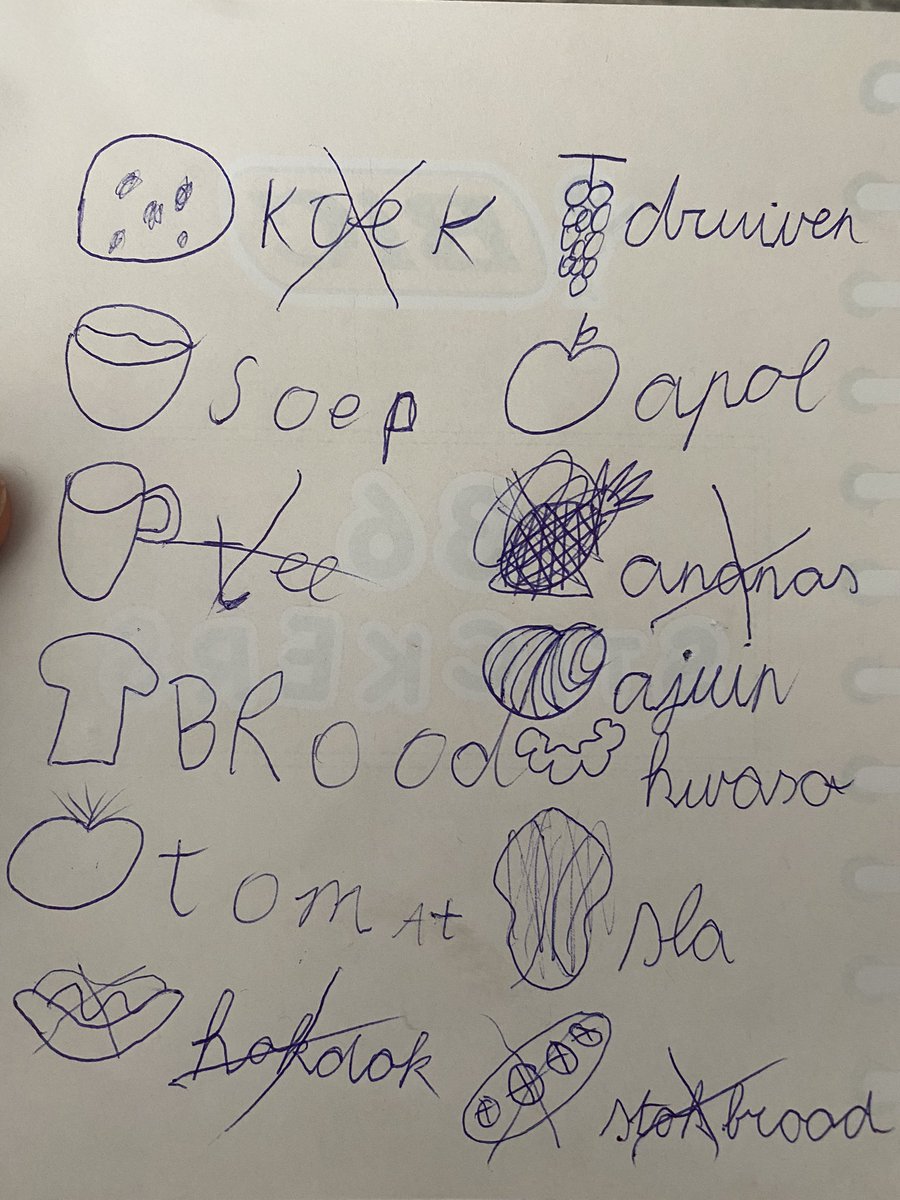 koek
soep
tee
BRood
tomAt
hokdok
druiven
apol
ananas
ajuin
kwaso
sla
stokbrood